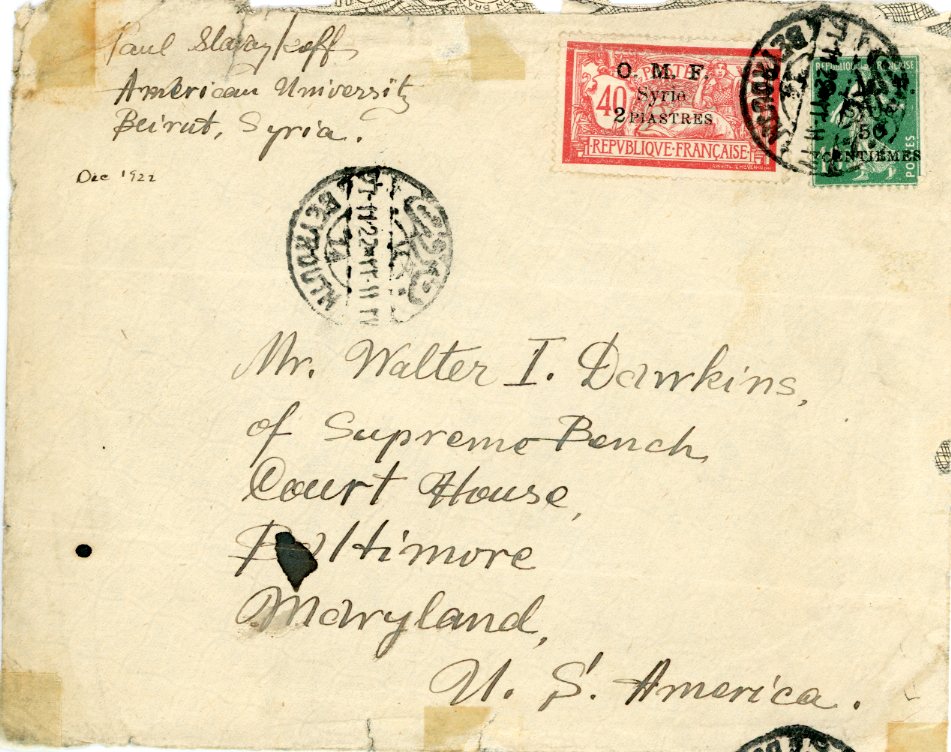 Paul Slavay/koff
American University
Beirut, Syria.
Dec 1922
O. M. F.
Syrie
40
2 PIASTRES
REPVBLIQVE·FRANÇAISE
REPUBLIQUE FRANÇAISE
50
CENTIEMES
POSTES
BEYROUTH
BEYROUTH
Mr. Walter I. Dawkins,
of Supreme Bench
Court House,
Baltimore
Maryland,
U. S. America.